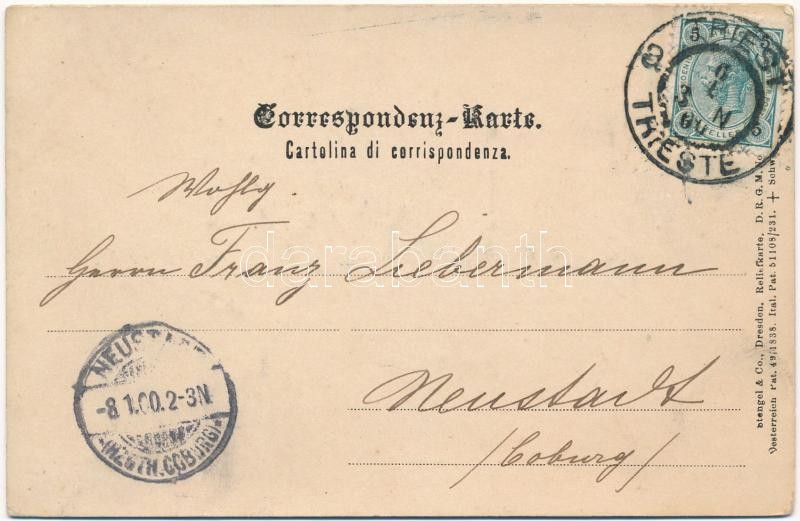 TRIEST
TRIESTE
5 HELLER 5
Correspondenz-Karte.
Cartolina di corrispondenza.
Wohlg
Herrn Franz Liebermann
darabanth
NEUSTADT
-8 1.00.2-3N
(HZGTH.COBURG)
Neustadt
/Coburg/
Stengel & Co., Dresden. Reliefkarte. D. R. G. M. No
Oesterreich Pat. 49/1838. Ital. Pat. 51108/231. + Schw